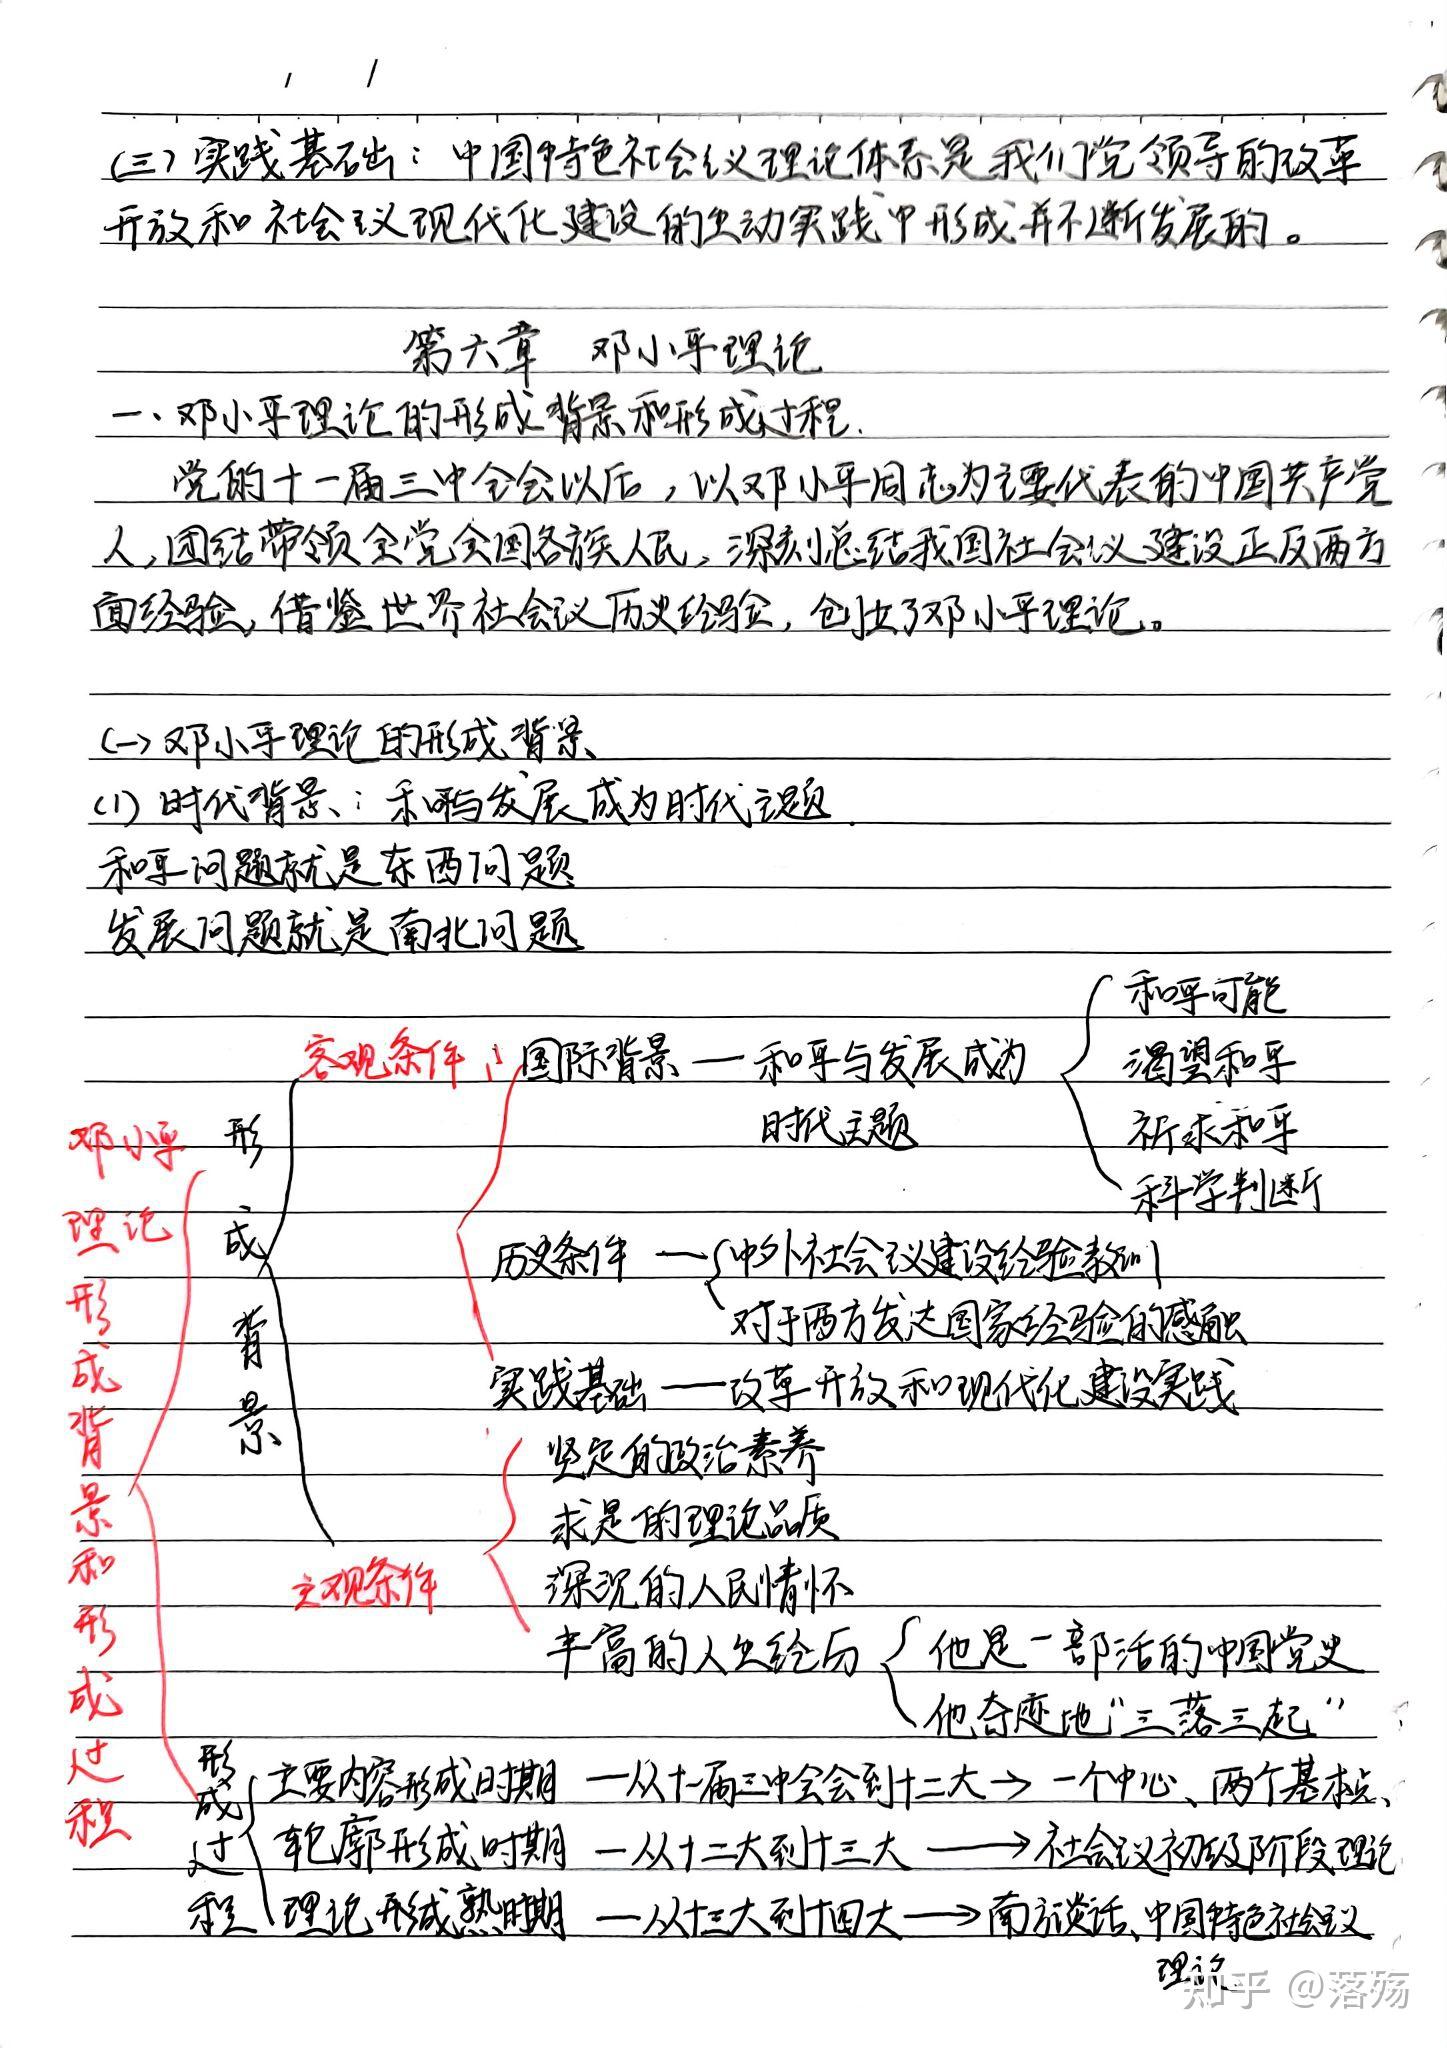 (三)实践基础：中国特色社会议理论体系是我们党领导的改革
开放和社会议现代化建设的生动实践中形成并不断发展的。
第六章 邓小平理论
一、邓小平理论的形成背景和形成过程.
党的十一届三中全会以后，以邓小平同志为主要代表的中国共产党
人，团结带领全党全国各族人民，深刻总结我国社会议建设正反两方
面经验，借鉴世界社会议历史经验，创立了邓小平理论。
(一)邓小平理论的形成背景
(1)时代背景：和平与发展成为时代主题.
和平问题就是东西问题
发展问题就是南北问题
邓小平理论形成背景和形成过程
形成背景
客观条件
国际背景 — 和平与发展成为
时代主题
和平可能
渴望和平
祈求和平
科学判断
历史条件 — 中外社会议建设经验教训
对于西方发达国家经验的感触
实践基础 — 改革开放和现代化建设实践
主观条件
坚定的政治素养
求是的理论品质
深沉的人民情怀
丰富的人生经历
他是一部活的中国党史
他奇迹地“三落三起”
形成过程
主要内容形成时期 — 从十一届三中全会到十二大 → 一个中心、两个基本点、
轮廓形成时期 — 从十二大到十三大 → 社会议初级阶段理论
理论形成熟时期 — 从十三大到十四大 → 南方谈话、中国特色社会议
理论
知乎 @落殇